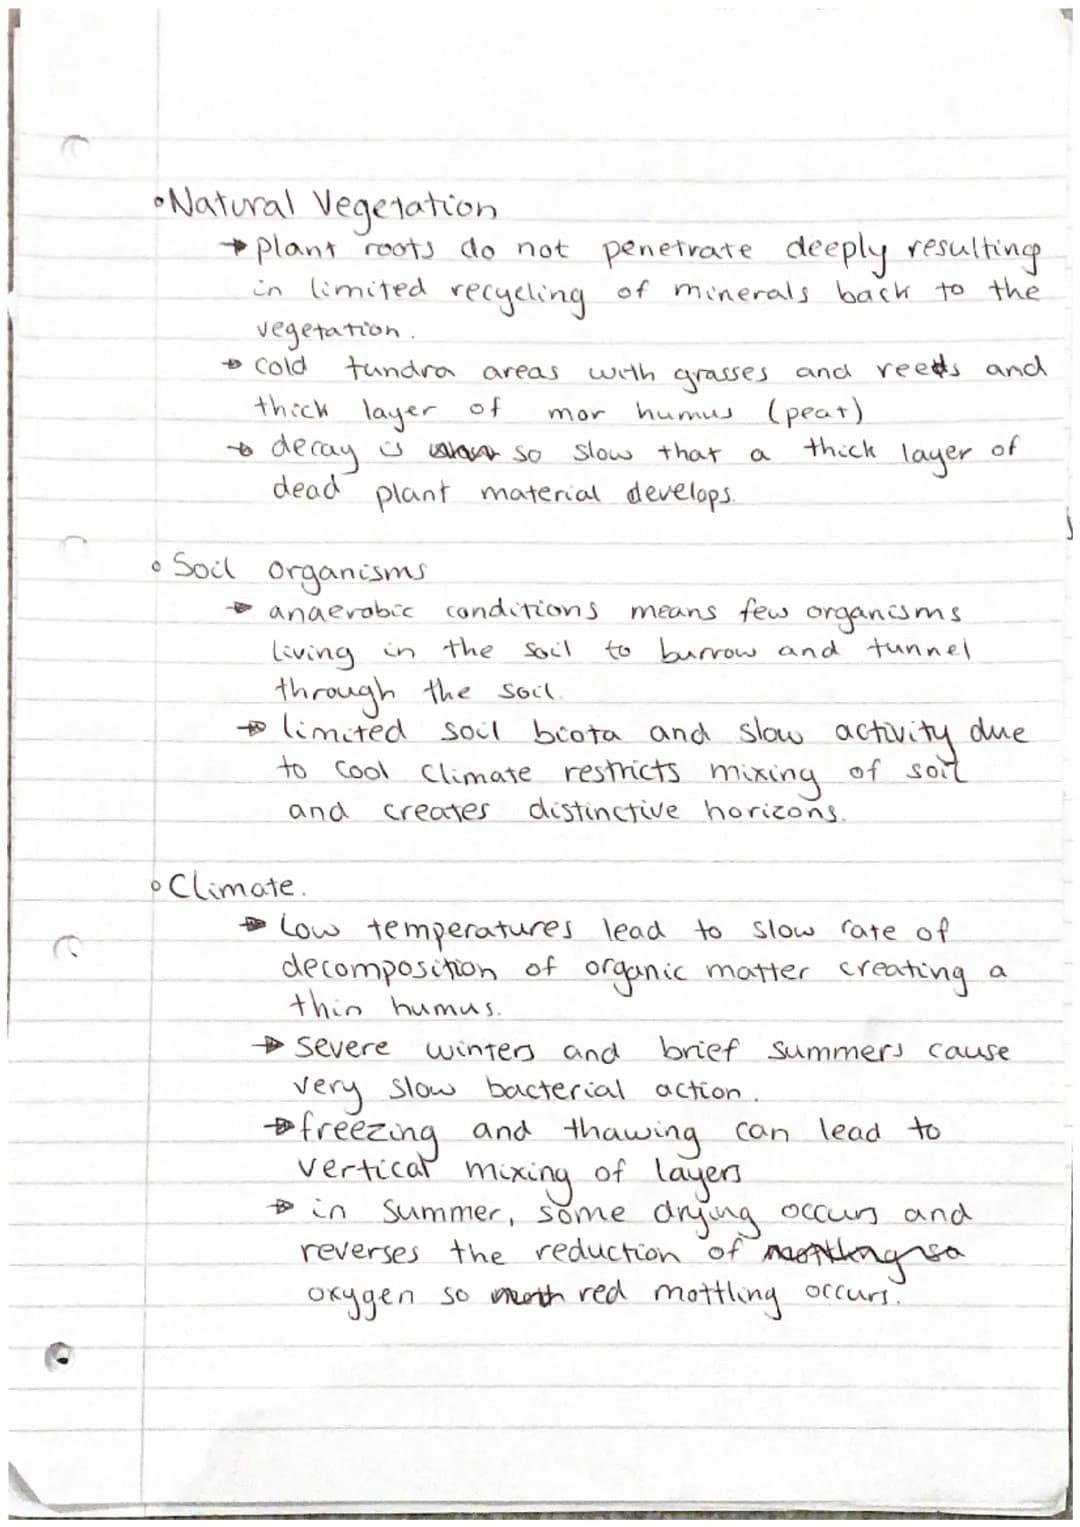 • Natural Vegetation
→ plant roots do not penetrate deeply resulting
in limited recycling of minerals back to the
vegetation.
→ cold tundra areas with grasses and reeds and
thick layer of mor humus (peat)
→ decay is so slow that a thick layer of
dead plant material develops.
• Soil organisms
→ anaerobic conditions means few organisms
living in the soil to burrow and tunnel
through the soil.
→ limited soil biota and slow activity due
to cool climate restricts mixing of soil
and creates distinctive horizons.
• Climate.
→ Low temperatures lead to slow rate of
decomposition of organic matter creating a
thin humus.
→ severe winters and brief summers cause
very slow bacterial action.
→ freezing and thawing can lead to
vertical mixing of layers
→ in summer, some drying occurs and
reverses the reduction of
oxygen so red mottling occurs.